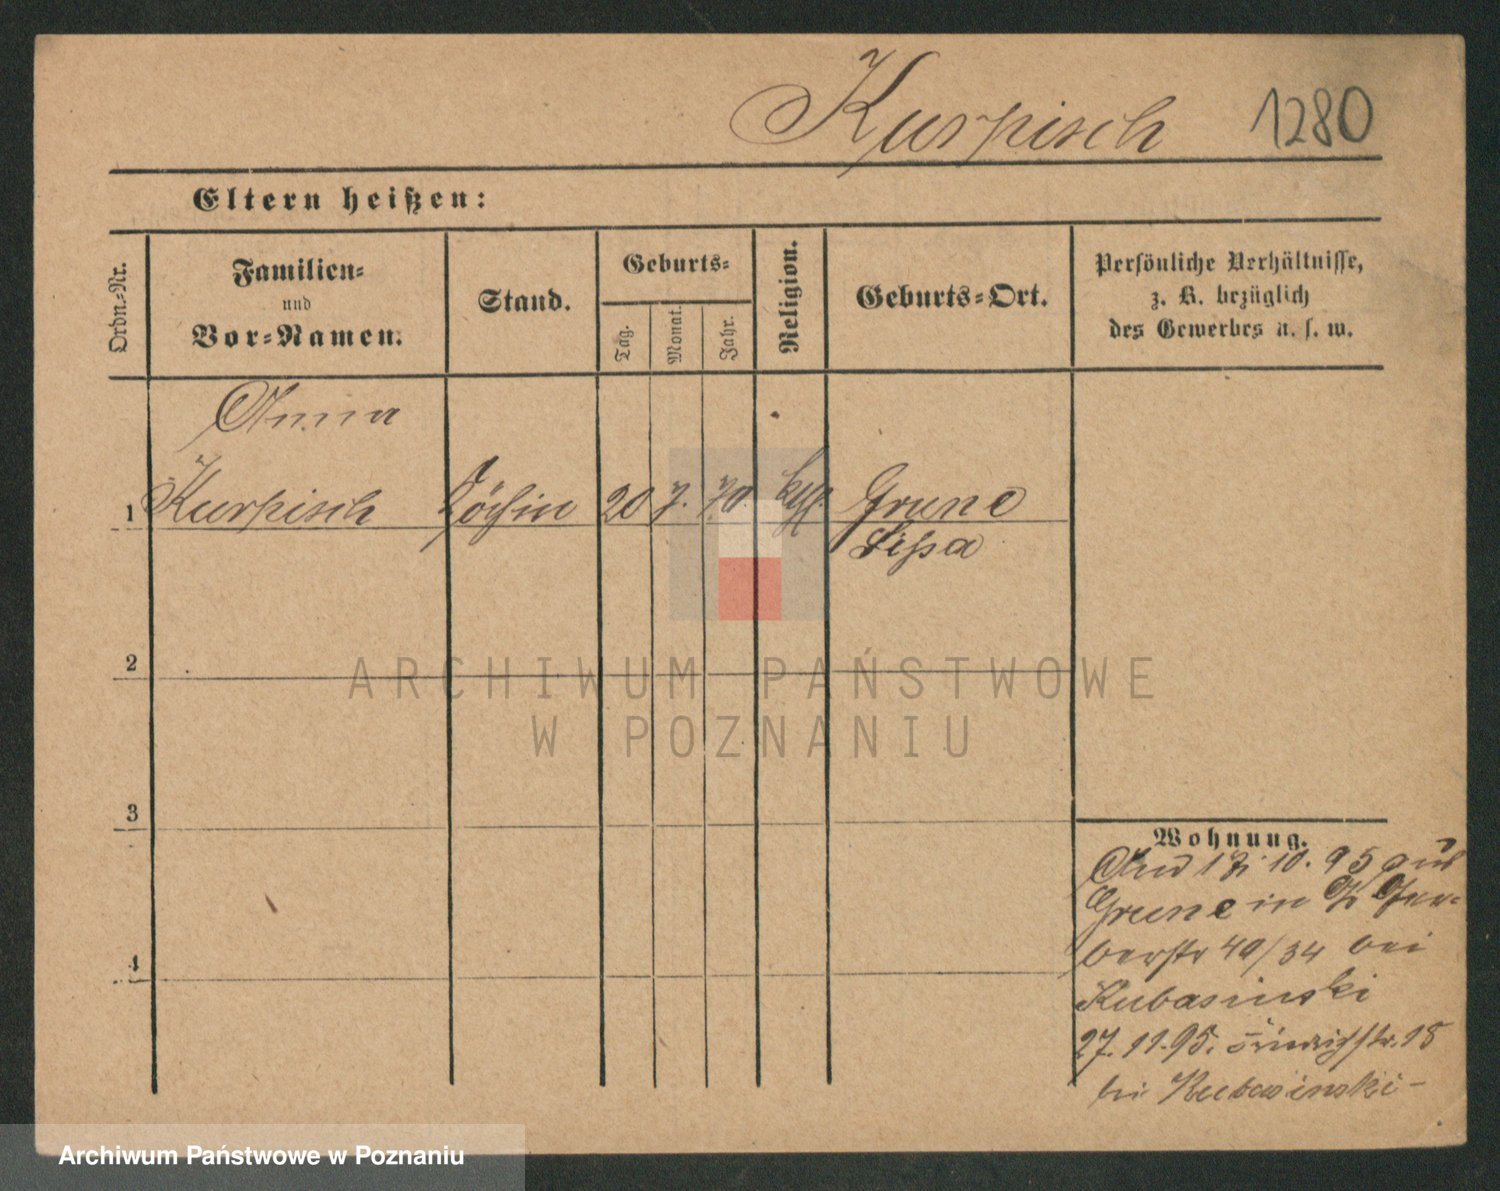 Kurpisch 1280
Eltern heißen:
Ordn.-Nr.
Familien-
und
Vor-Namen.
Stand.
Geburts-
Tag.
Monat.
Jahr.
Religion.
Geburts-Ort.
Persönliche Verhältnisse,
z. B. bezüglich
des Gewerbes u. s. w.
Anna
1 Kurpisch Köchin 20 7. 70. kath. Grune
Lissa
2
3
4
Wohnung.
10. 95 aus
Grune in
berstr 40/34 bei
Kubasinski
27. 11. 95. 18
bei Kubasinski
ARCHIWUM PAŃSTWOWE
W POZNANIU
Archiwum Państwowe w Poznaniu